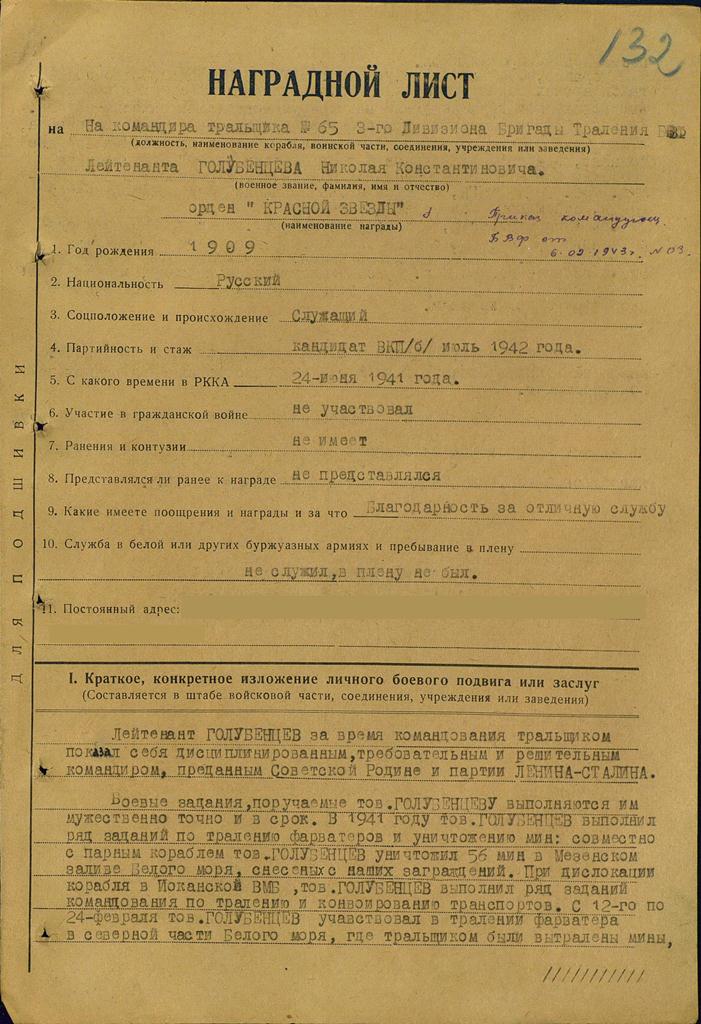 132
НАГРАДНОЙ ЛИСТ
на На командира тральщика № 65 3-го Дивизиона Бригады Траления
(должность, наименование корабля, воинской части, соединения, учреждения или заведения)
Лейтенанта ГОЛУБЕНЦЕВА Николая Константиновича.
(военное звание, фамилия, имя и отчество)
орден " КРАСНОЙ ЗВЕЗДЫ" Приказ командующ.
(наименование награды)
БВФ от
6.02.1943г. № 03.
1. Год рождения 1909
2. Национальность Русский
3. Соцположение и происхождение Служащий
4. Партийность и стаж кандидат ВКП/б/ июль 1942 года.
5. С какого времени в РККА 24-июня 1941 года.
6. Участие в гражданской войне не участвовал
7. Ранения и контузии не имеет
8. Представлялся ли ранее к награде не представлялся
9. Какие имеете поощрения и награды и за что Благодарность за отличную службу
10. Служба в белой или других буржуазных армиях и пребывание в плену
не служил,в плену не был.
11. Постоянный адрес:
ДЛЯ ПОДШИВКИ
I. Краткое, конкретное изложение личного боевого подвига или заслуг
(Составляется в штабе войсковой части, соединения, учреждения или заведения)
Лейтенант ГОЛУБЕНЦЕВ за время командования тральщиком
показал себя дисциплинированным,требовательным и решительным
командиром, преданным Советской Родине и партии ЛЕНИНА-СТАЛИНА.
Боевые задания,поручаемые тов.ГОЛУБЕНЦЕВУ выполняются им
мужественно точно и в срок. В 1941 году тов.ГОЛУБЕНЦЕВ выполнил
ряд заданий по тралению фарватеров и уничтожению мин: совместно
с парным кораблем тов.ГОЛУБЕНЦЕВ уничтожил 56 мин в Мезенском
заливе Белого моря, снесеных с наших заграждений. При дислокации
корабля в Иоканской ВМБ ,тов.ГОЛУБЕНЦЕВ выполнил ряд заданий
командования по тралению и конвоированию транспортов. С 12-го по
24-февраля тов.ГОЛУБЕНЦЕВ учавствовал в тралении фарватера
в северной части Белого моря, где тральщиком были вытралены мины,